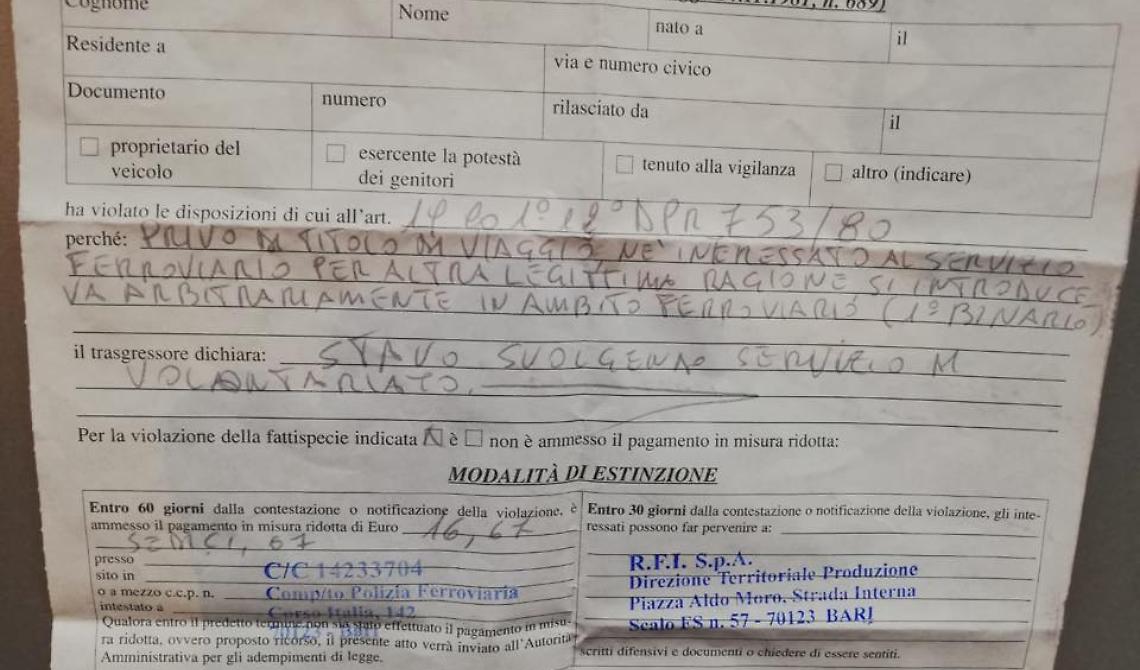 Cognome
Nome
nato a
il
Residente a
via e numero civico
Documento
numero
rilasciato da
il
proprietario del
veicolo
esercente la potestà
dei genitori
tenuto alla vigilanza
altro (indicare)
ha violato le disposizioni di cui all'art. DPR 753/80
perché: PRIVO DI TITOLO DI VIAGGIO, NE' INERESSATO AL SERVIZIO
FERROVIARIO PER ALTRA LEGITTIMA RAGIONE SI INTRODUCE
VA ARBITRARIAMENTE IN AMBITO FERROVIARIO (1° BINARIO)
il trasgressore dichiara: STAVO SVOLGENDO SERVIZIO DI
VOLONTARIATO.
Per la violazione della fattispecie indicata è non è ammesso il pagamento in misura ridotta:
MODALITÀ DI ESTINZIONE
Entro 60 giorni dalla contestazione o notificazione della violazione, è
ammesso il pagamento in misura ridotta di Euro 16,67
presso
sito in C/C 14233704
o a mezzo c.c.p. n. Comp/to Polizia Ferroviaria
intestato a Corso Italia, 142
70123 - Bari
Qualora entro il predetto termine non sia stato effettuato il pagamento in misu-
ra ridotta, ovvero proposto ricorso, il presente atto verrà inviato all'Autorità
Amministrativa per gli adempimenti di legge.
Entro 30 giorni dalla contestazione o notificazione della violazione, gli inte-
ressati possono far pervenire a:
R.F.I. S.p.A.
Direzione Territoriale Produzione
Piazza Aldo Moro, Strada Interna
Scalo FS n. 57 - 70123 BARI
scritti difensivi e documenti o chiedere di essere sentiti.